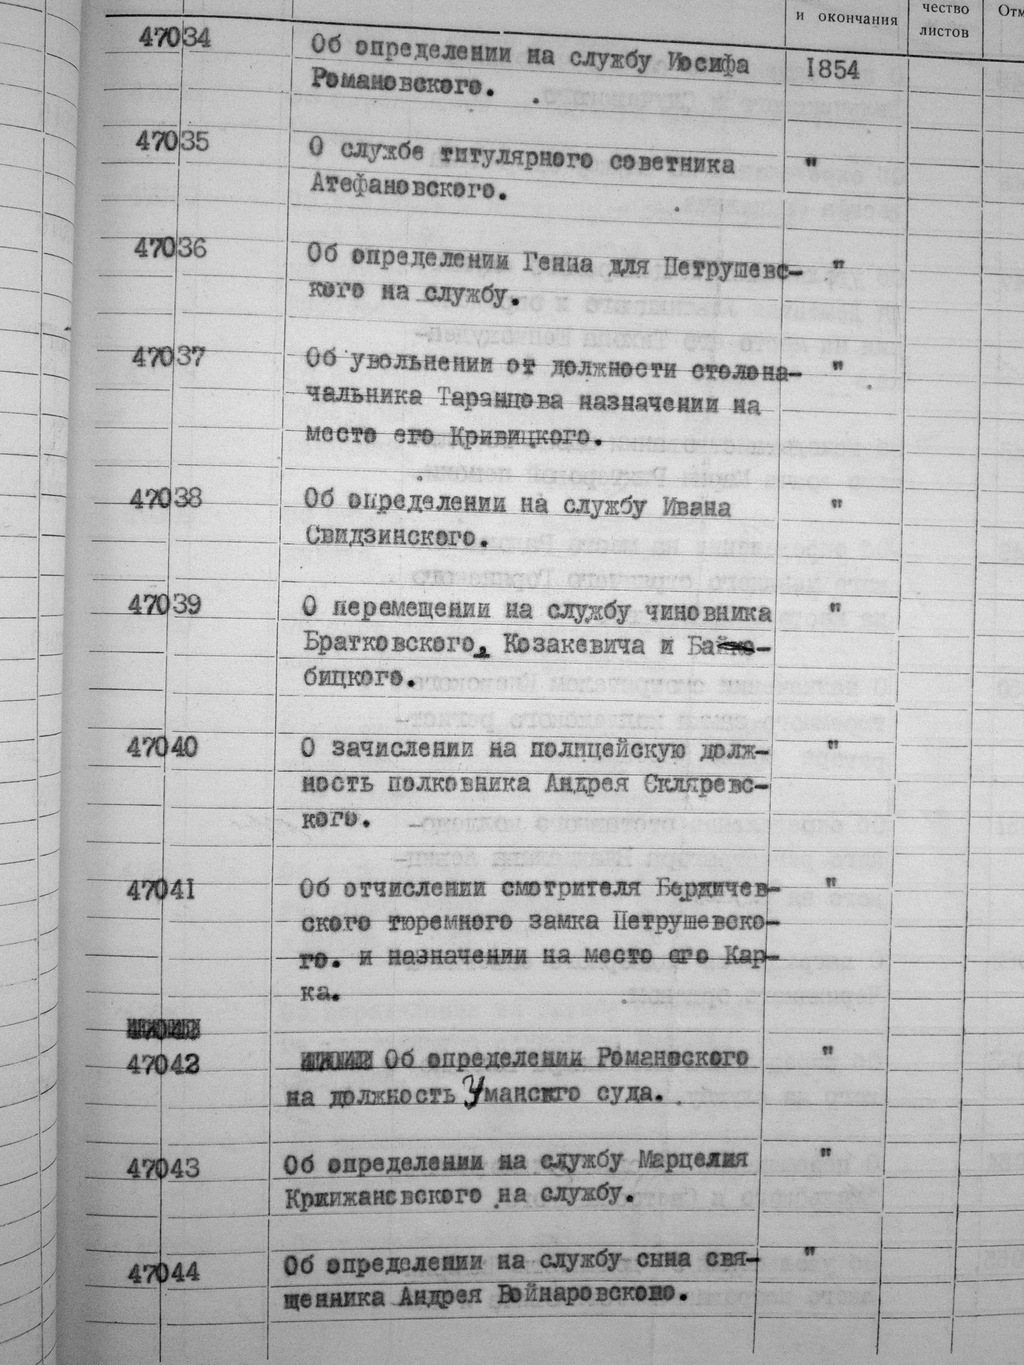 и окончания
чество
листов
Отм
47034
Об определении на службу Иосифа
1854
Романовского.
47035
О службе титулярного советника
"
Атефановского.
47036
Об определении Генна для Петрушевс- "
кого на службу.
47037
Об увольнении от должности столона- "
чальника Таранцова назначении на
место его Кривицкого.
47038
Об определении на службу Ивана
"
Свидзинского.
47039
О перемещении на службу чиновника
"
Братковского, Козакевича и Ба
бицкого.
47040
О зачислении на полицейскую долж-
"
ность полковника Андрея Скляревс-
кого.
47041
Об отчислении смотрителя Бердичев- "
ского тюремного замка Петрушевско-
го. и назначении на место его Кар-
ка.
47042
Об определении Романовского
"
на должность Уманского суда.
47043
Об определении на службу Марцелия
"
Кржижановского на службу.
47044
Об определении на службу сына свя-
"
щенника Андрея Войнаровсконо.